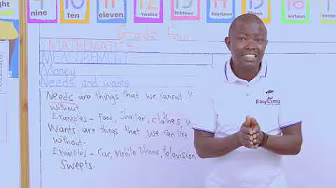 nine
10
ten
11
eleven
12
13
14
15
16
Grade Four
MATHEMATICS
MEASUREMENT
Money
Needs and wants
Needs are things that we cannot
without
Examples - Food, Shelter, clothes
Wants are things that we can live
without.
Examples - Car, Mobile Phone, Television
Sweets.